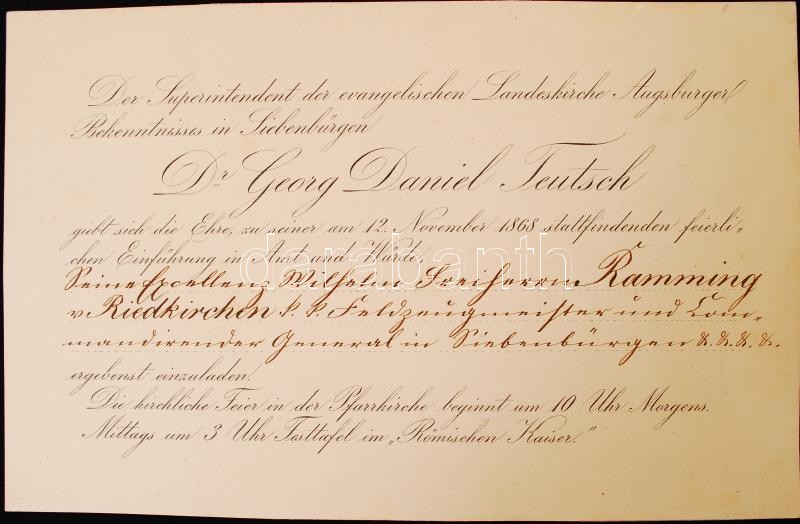 Der Superintendent der evangelischen Landeskirche Augsburger
Bekenntnisses in Siebenbürgen
Dr Georg Daniel Teutsch
giebt sich die Ehre, zu seiner am 12. November 1868 stattfindenden feierli-
chen Einführung in Amt und Würde,
Seine Excellenz Wilhelm Freiherrn Ramming
v Riedkirchen k. k. Feldzeugmeister und Com-
mandirender General in Siebenbürgen &. &. &. &.
ergebenst einzuladen.
Die kirchliche Feier in der Pfarrkirche beginnt um 10 Uhr Morgens.
Mittags um 3 Uhr Festtafel im „Römischen Kaiser."
darabanth